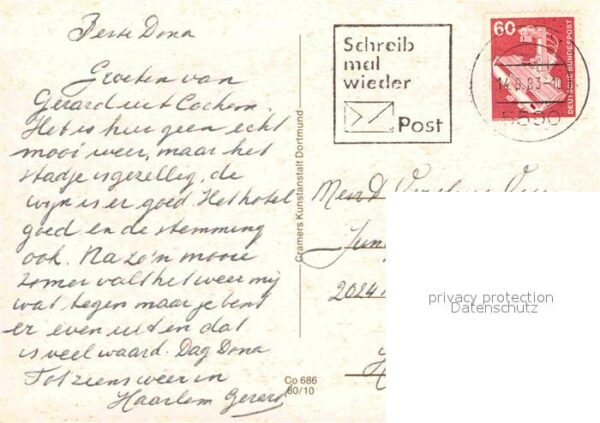 Beste Dona
Groeten van
Gerard uit Cochem.
Het is hier geen echt
mooi weer, maar het
stadje is gezellig, de
wijn is er goed. Het hotel
goed en de stemming
ook. Na zo'n mooie
zomer valt het weer mij
wat tegen maar je bent
er even uit en dat
is veel waard. Dag Dona
Tot ziens weer in
Haarlem Gerard
Cramers Kunstanstalt Dortmund
Co 686
60/10
Schreib
mal
wieder
Post
60
DEUTSCHE BUNDESPOST
14.9.83-10
5590
2024
privacy protection
Datenschutz